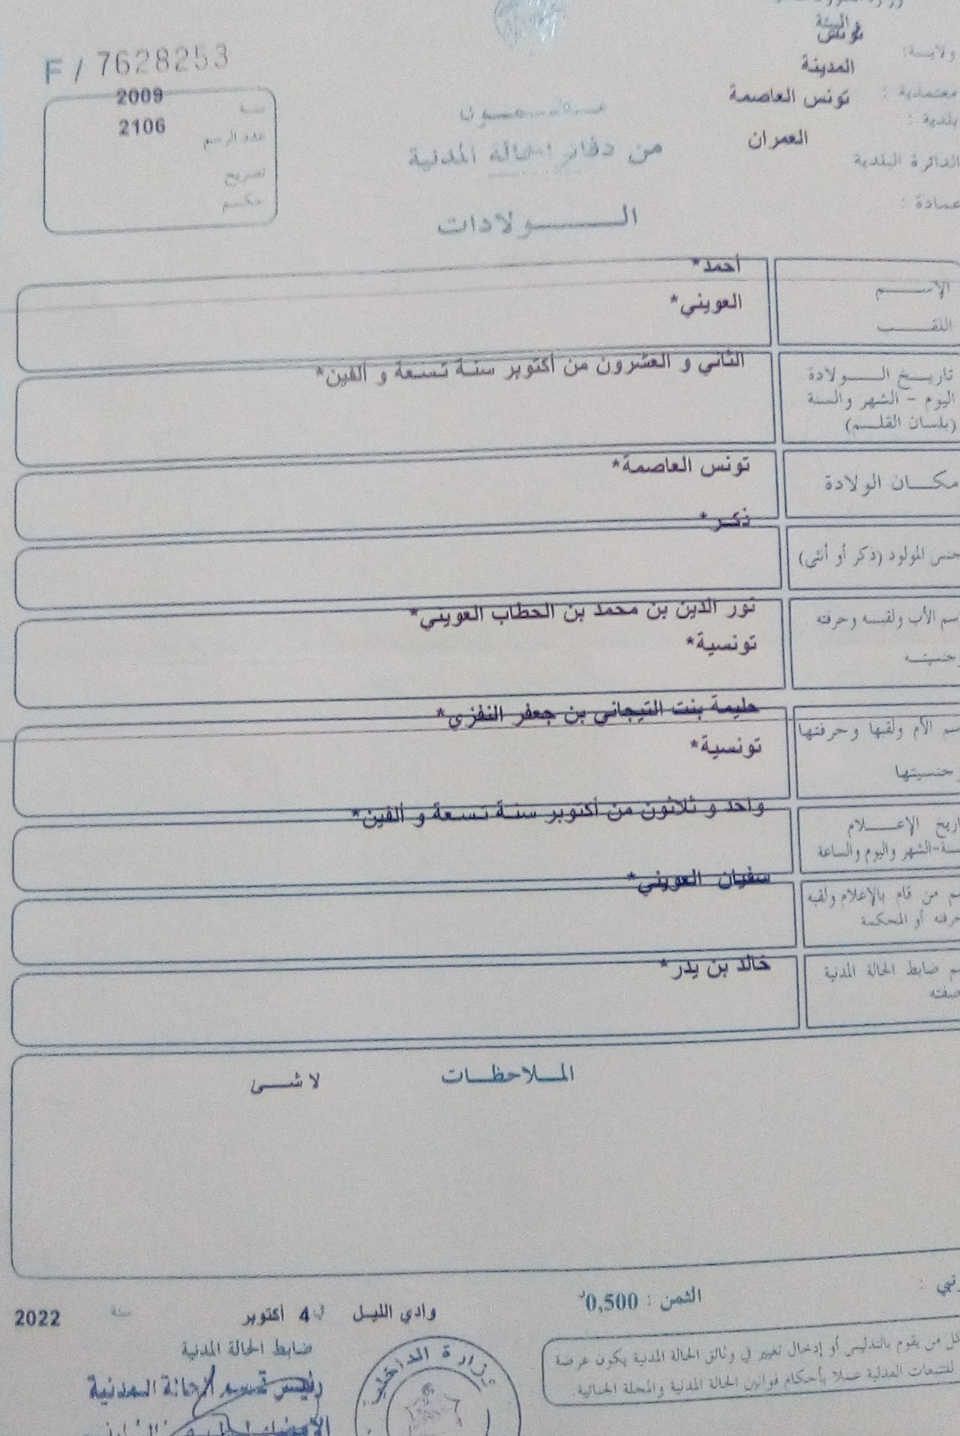 ولايـة: تونس
معتمدية : المدينة
بلدية : تونس العاصمة
الدائرة البلدية العمران
عمادة :
F / 7628253
سنة 2009
عدد الرسم 2106
تصريح
حكـم
مـن دفاتر الحالة المدنية
الـــولادات
الإســـم أحمد*
اللقـــب العويني*
تاريـخ الـــولادة
اليوم - الشهر والسنة
(بلسان القلـم)
الثاني و العشرون من أكتوبر سنة تسعة و ألفين*
مكـــان الولادة تونس العاصمة*
جنس المولود (ذكر أو أنثى) ذكـر*
إسم الأب ولقبـه وحرفته نور الدين بن محمد بن الحطاب العويني*
وجنسيتـه تونسية*
إسم الأم ولقبها وحرفتها حليمة بنت التيجاني بن جعفر النفزي*
وجنسيتها تونسية*
تاريخ الإعـــلام
السنة-الشهر واليوم والساعة
واحد و ثلاثون من أكتوبر سنة تسعة و ألفين*
إسم من قام بالإعلام ولقبه
وحرفته أو المحكمة
سفيان العويني*
إسم ضابط الحالة المدنية
وصفته
خالد بن بدر*
المــلاحظــات
لا شـــئ
الثمن : 0,500د
وادي الليل في 4 أكتوبر سنة 2022
ضابط الحالة المدنية
رئيس قسم الحالة المدنية
وزارة الداخلية
كل من يقوم بالتدليس أو إدخال تغيير في وثائق الحالة المدنية يكون عرضة
للتتبعات العدلية عملا بأحكام قوانين الحالة المدنية والمجلة الجنائية.